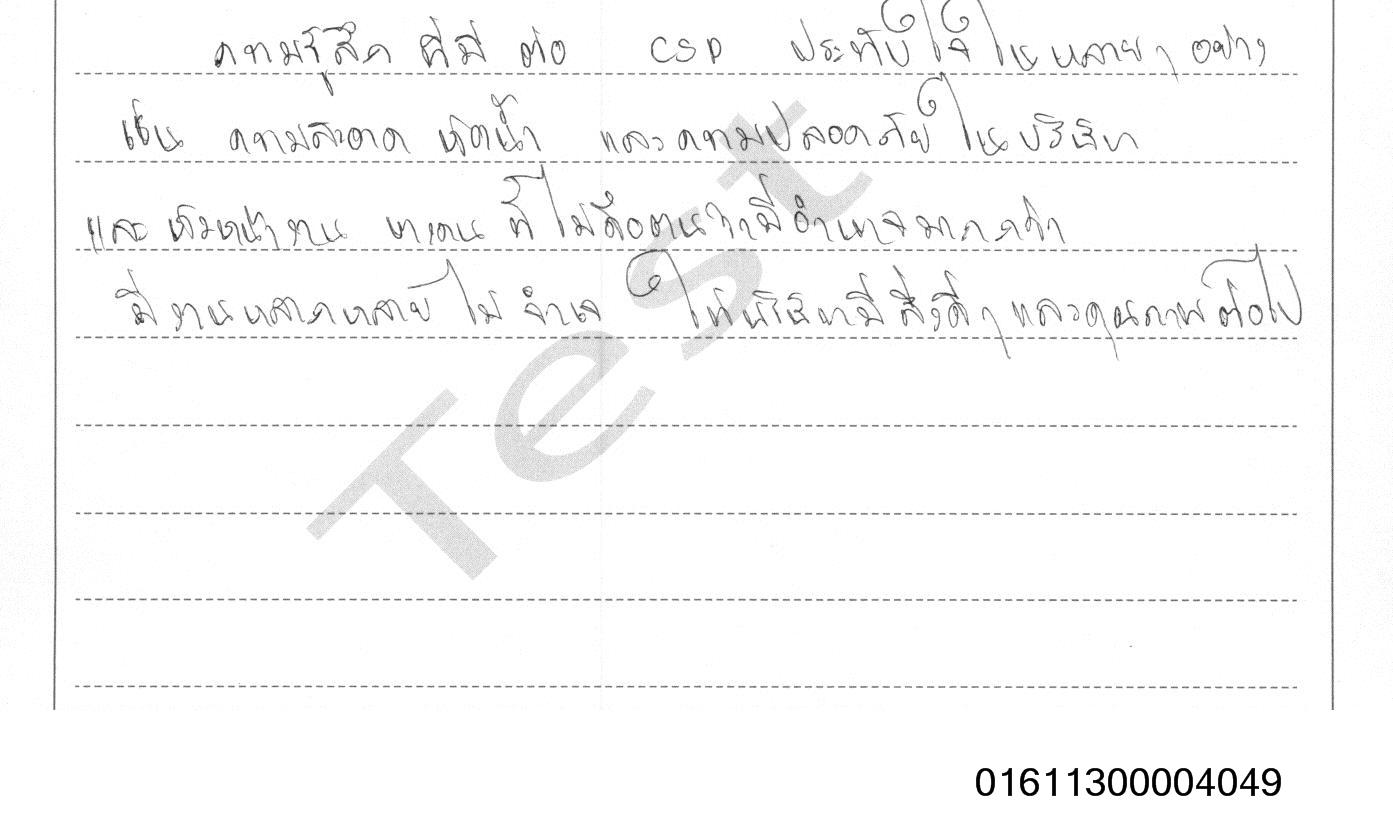 ความรู้สึก ที่มี ต่อ CSP ประทับใจ ในหลายๆ อย่าง
เช่น ความสะอาด ห้องน้ำ และความปลอดภัย ในบริษัท
และ หัวหน้างาน บางคน ที่ ไม่ถือตนว่ามีอำนาจมากกว่า
มีงานหลากหลาย ไม่จำเจ ให้บริษัทมีสิ่งดีๆ และคุณภาพต่อไป
Test
01611300004049